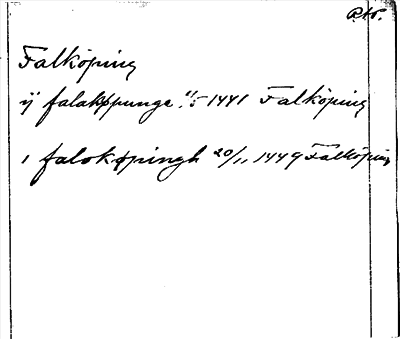 Falköping
ij falakøpunge 1441 Falköping
i faloköpingh 20/11 1449 Falköping